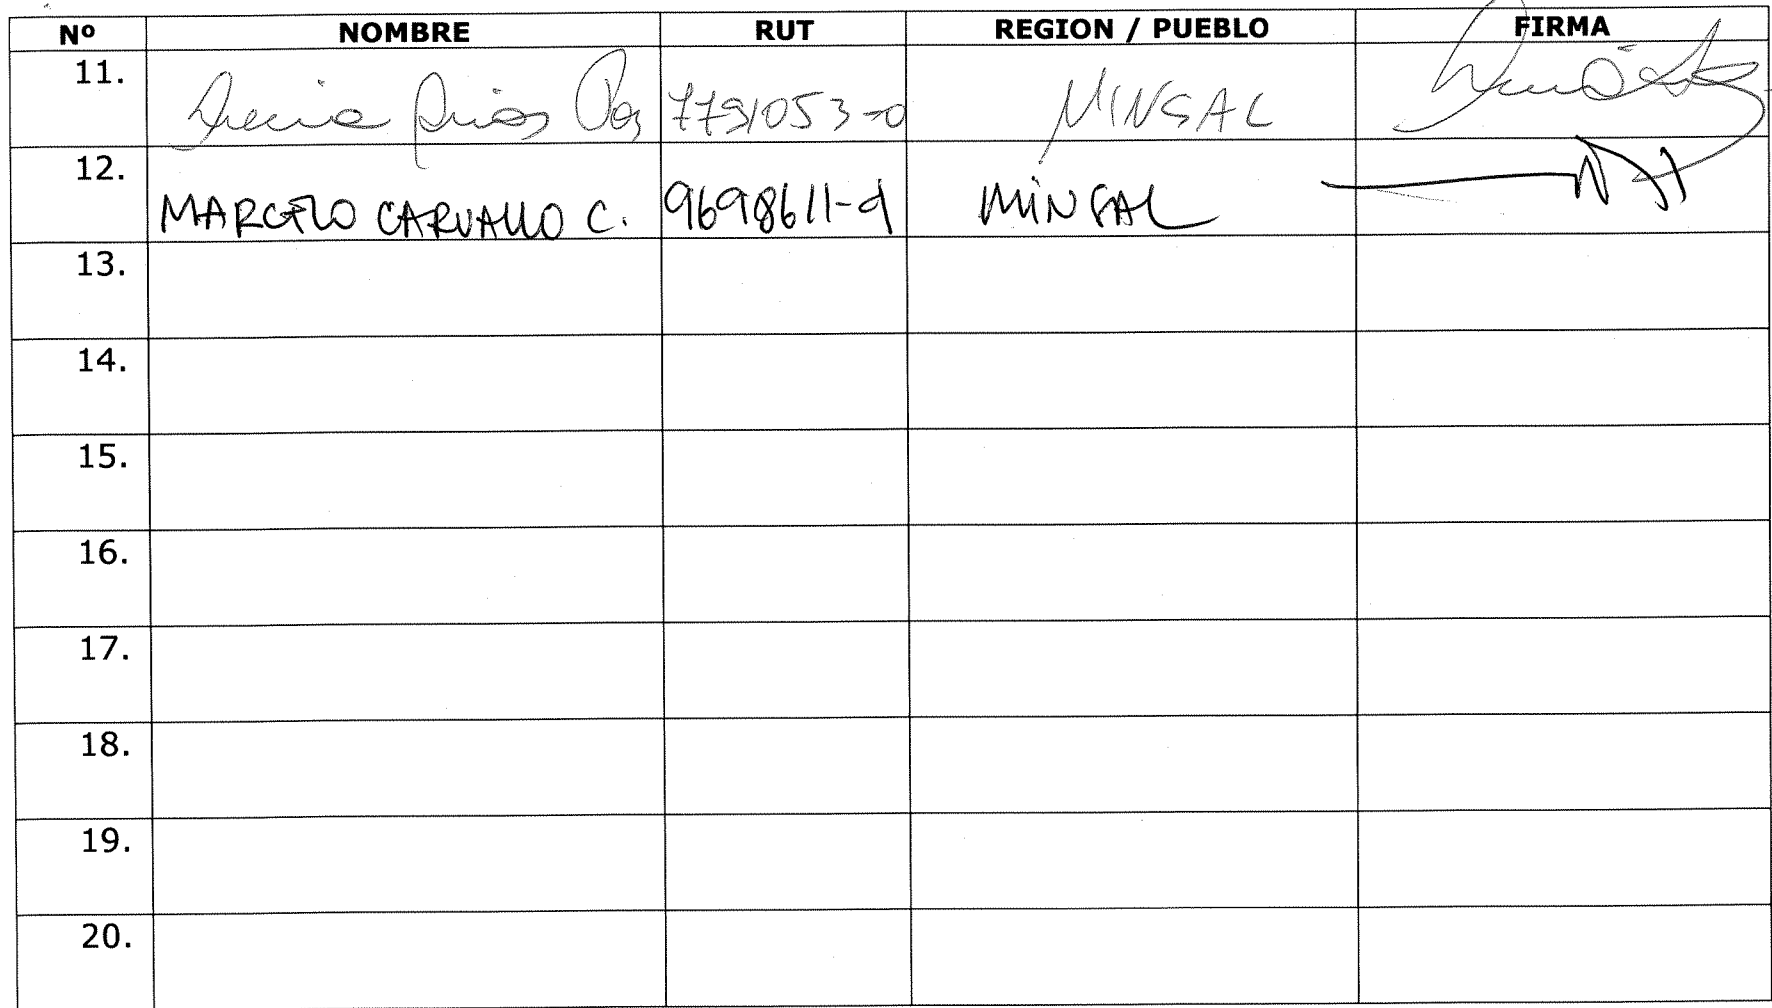 Nº NOMBRE RUT REGION / PUEBLO FIRMA
11. MINSAL
12. MARCELO CARVALLO C. 9698611-9 MINSAL
13.
14.
15.
16.
17.
18.
19.
20.